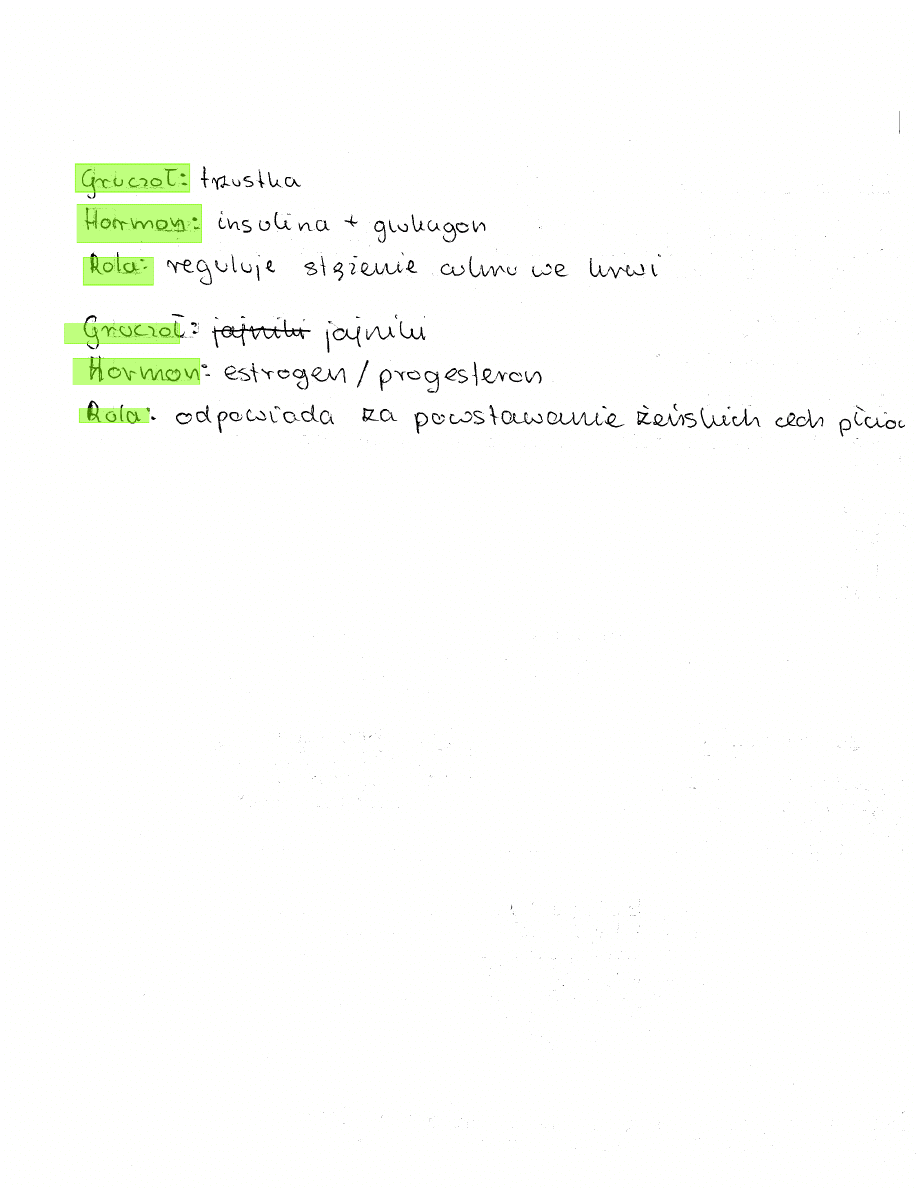 Gruczoł: trzustka
Hormon: insulina + glukagon
Rola: reguluje stężenie cukru we krwi
Gruczoł: jajniki jajniki
Hormon: estrogen / progesteron
Rola: odpowiada za powstawanie żeńskich cech płciow